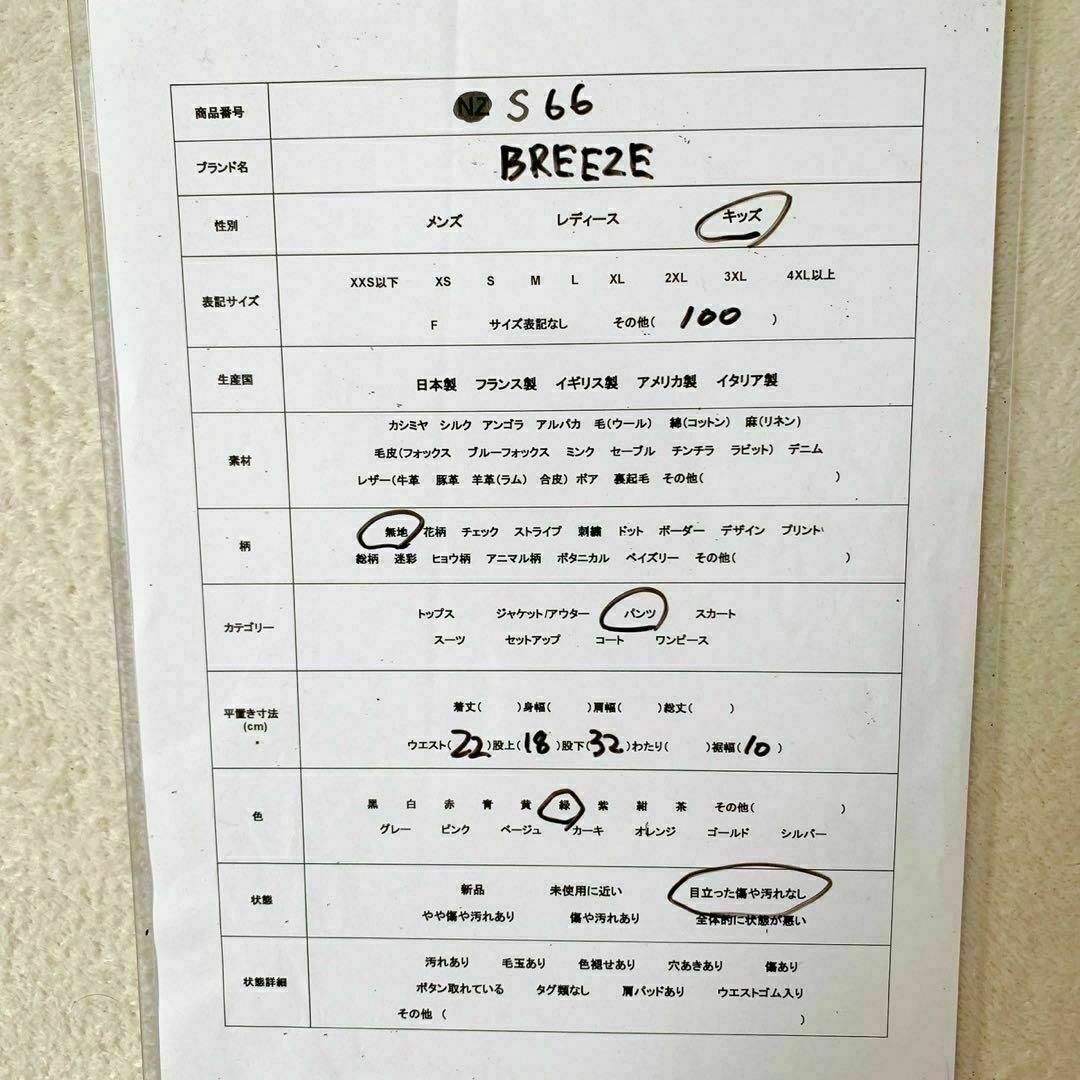 商品番号 N2 S 66
ブランド名 BREEZE
性別 メンズ レディース キッズ
表記サイズ XXS以下 XS S M L XL 2XL 3XL 4XL以上
F サイズ表記なし その他( 100 )
生産国 日本製 フランス製 イギリス製 アメリカ製 イタリア製
素材 カシミヤ シルク アンゴラ アルパカ 毛(ウール) 綿(コットン) 麻(リネン)
毛皮(フォックス ブルーフォックス ミンク セーブル チンチラ ラビット) デニム
レザー(牛革 豚革 羊革(ラム) 合皮) ボア 裏起毛 その他( )
柄 無地 花柄 チェック ストライプ 刺繍 ドット ボーダー デザイン プリント
総柄 迷彩 ヒョウ柄 アニマル柄 ボタニカル ペイズリー その他( )
カテゴリー トップス ジャケット/アウター パンツ スカート
スーツ セットアップ コート ワンピース
平置き寸法
(cm)
着丈( )身幅( )肩幅( )総丈( )
ウエスト(22)股上(18)股下(32)わたり( )裾幅(10)
色 黒 白 赤 青 黄 緑 紫 紺 茶 その他( )
グレー ピンク ベージュ カーキ オレンジ ゴールド シルバー
状態 新品 未使用に近い 目立った傷や汚れなし
やや傷や汚れあり 傷や汚れあり 全体的に状態が悪い
状態詳細 汚れあり 毛玉あり 色褪せあり 穴あきあり 傷あり
ボタン取れている タグ類なし 肩パッドあり ウエストゴム入り
その他 ( )